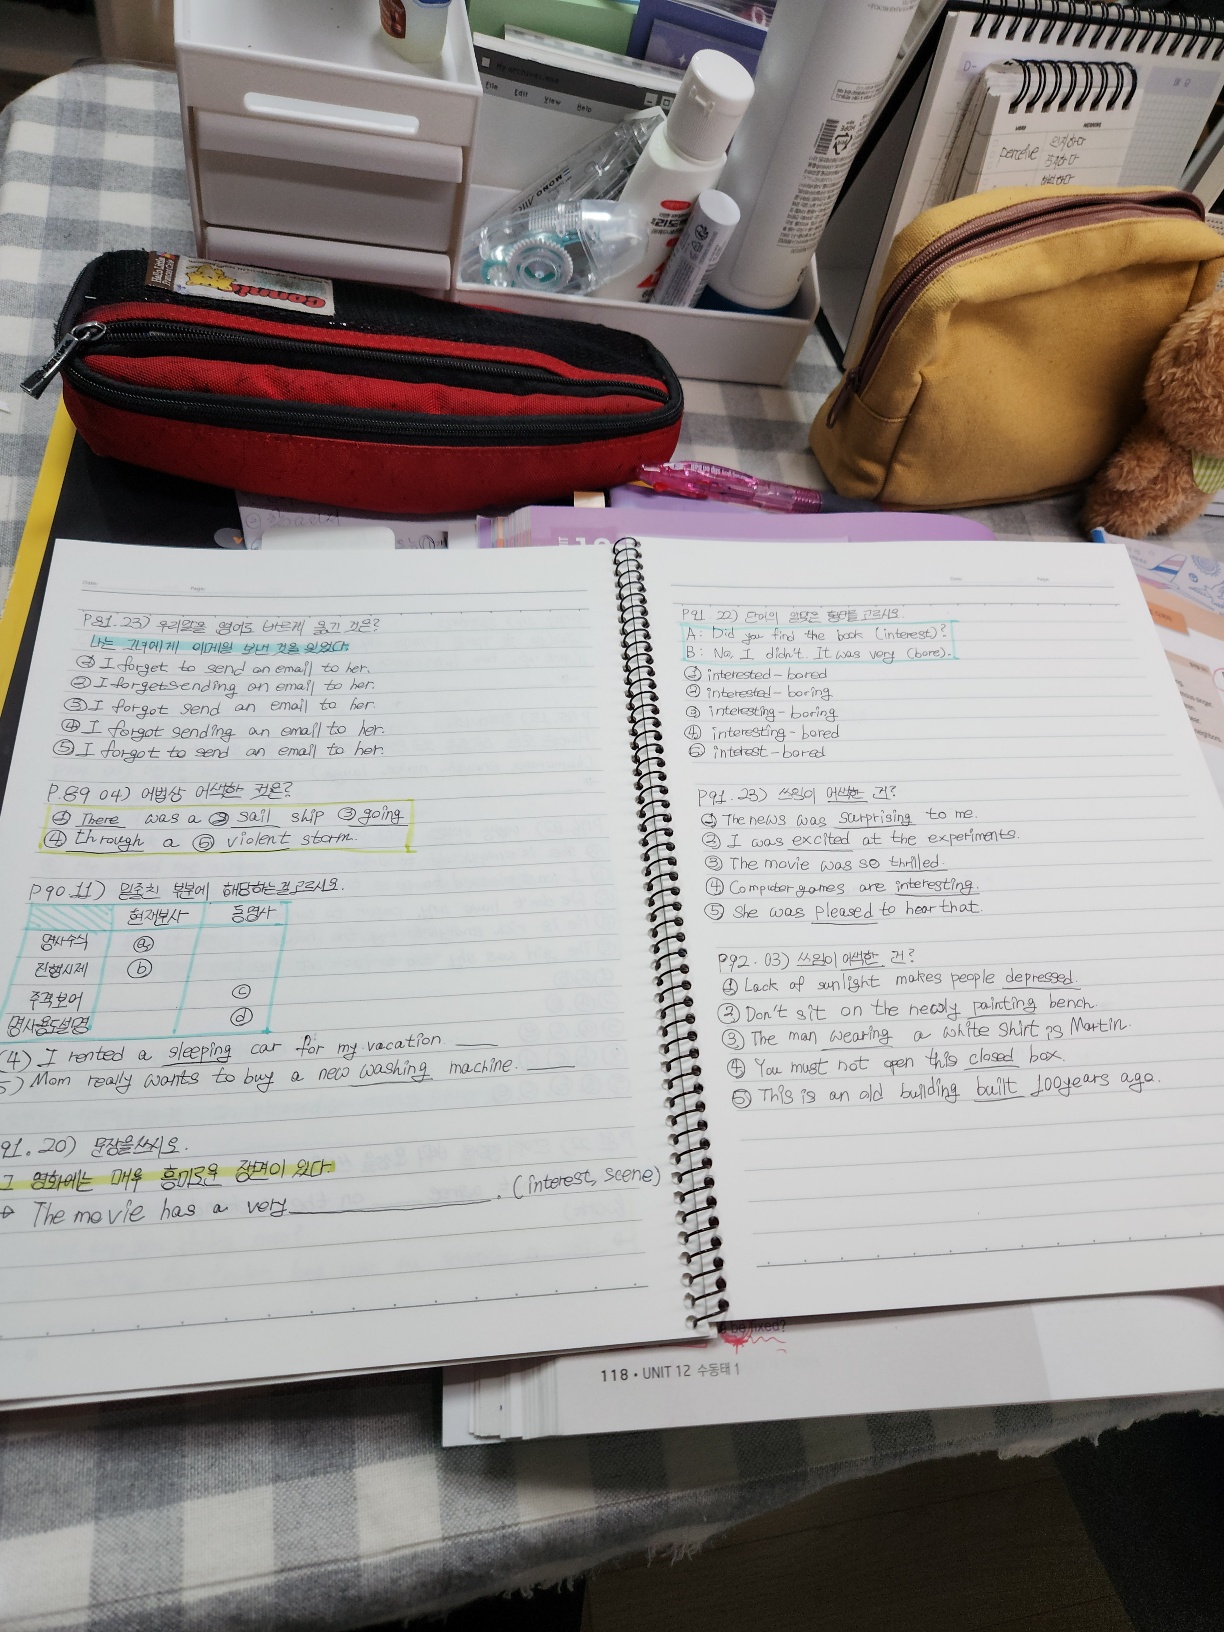 My archives.exe
File Edit View Help
MONO
perceive
Date
Page
P81. 23) 우리말을 영어로 바르게 옮긴 것은?
나는 그녀에게 이메일 보낸 것을 잊었다.
① I forget to send an email to her.
② I forget sending an email to her.
③ I forgot send an email to her.
④ I forgot sending an email to her.
⑤ I forgot to send an email to her.
P.89 04) 어법상 어색한 것은?
① There was a ② sail ship ③ going
④ through a ⑤ violent storm.
P90. 11) 밑줄친 부분에 해당하는걸 고르시오.
현재분사 동명사
명사수식 ⓐ
진행시제 ⓑ
주격보어 ⓒ
명사용도설명 ⓓ
(4) I rented a sleeping car for my vacation ___
5) Mom really wants to buy a new washing machine. ___
91. 20) 문장을 쓰시오.
그 영화에는 매우 흥미로운 장면이 있다.
The movie has a very ___. (interest, scene)
Date
Page
P91 22) 단어의 알맞은 형태를 고르시오.
A: Did you find the book (interest)?
B: No, I didn't. It was very (bore).
① interested - bored
② interested - boring
③ interesting - boring
④ interesting - bored
⑤ interest - bored
P91. 23) 쓰임이 어색한 건?
① The news was surprising to me.
② I was excited at the experiments.
③ The movie was so thrilled.
④ Computer games are interesting.
⑤ She was pleased to hear that.
P92. 03) 쓰임이 어색한 건?
① Lack of sunlight makes people depressed.
② Don't sit on the newly painting bench.
③ The man wearing a white shirt is Martin.
④ You must not open this closed box.
⑤ This is an old building built 100years ago.
be fixed?
118 • UNIT 12 수동태 1